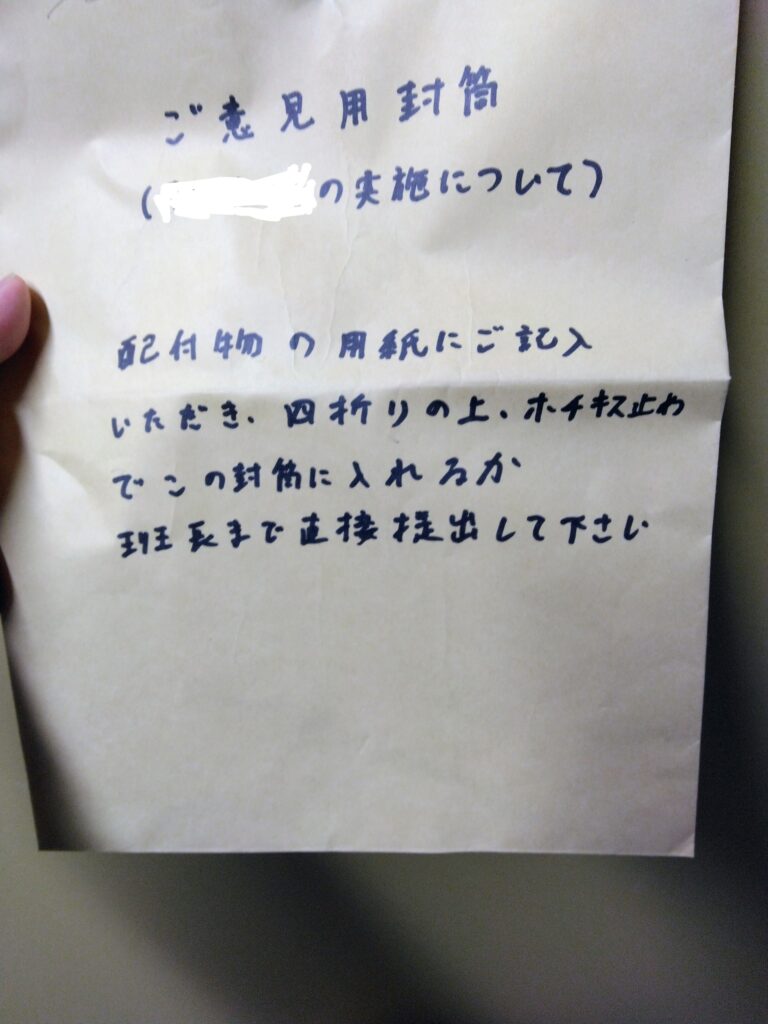 ご意見用封筒
(の実施について)
配付物の用紙にご記入
いただき、四折りの上、ホチキス止め
でこの封筒に入れるか
班長まで直接提出して下さい